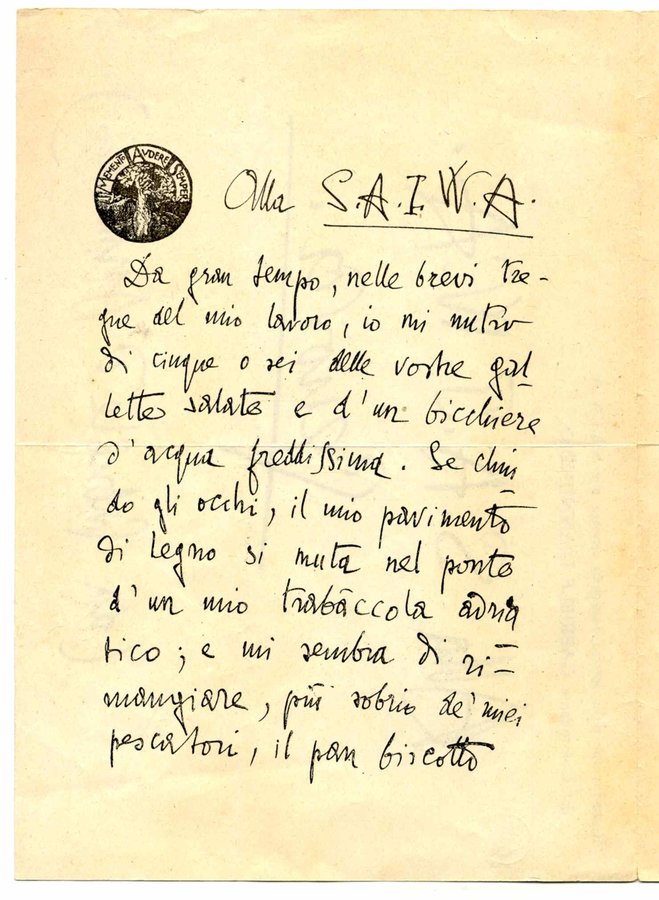 MEMENTO AUDERE SEMPER
Alla S.A.I.W.A.
Da gran tempo, nelle brevi tre-
gue del mio lavoro, io mi nutro
di cinque o sei delle vostre gal-
lette salate e d'un bicchiere
d'acqua freddissima. Se chiu-
do gli occhi, il mio pavimento
di legno si muta nel ponte
d'un mio trabàccola adria
tico; e mi sembra di ri-
mangiare, più sobrio de' miei
pescatori, il pan biscotto